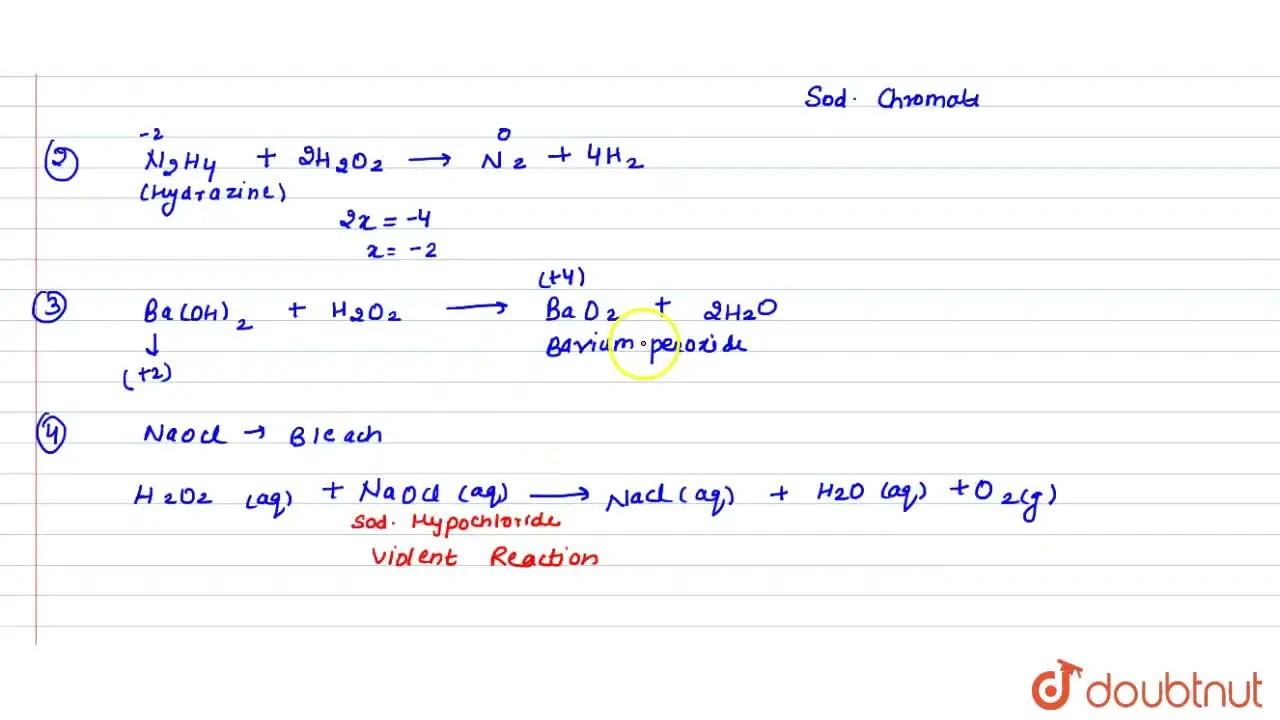 Sod. Chromate
-2 0
② N2H4 + 2H2O2 → N2 + 4H2
(Hydrazine)
2x = -4
x = -2
(+4)
③ Ba(OH)2 + H2O2 → BaO2 + 2H2O
↓ Barium peroxide
(+2)
④ NaOCl → Bleach
H2O2 (aq) + NaOCl (aq) → NaCl (aq) + H2O (aq) + O2 (g)
Sod. Hypochloride
Violent Reaction
doubtnut